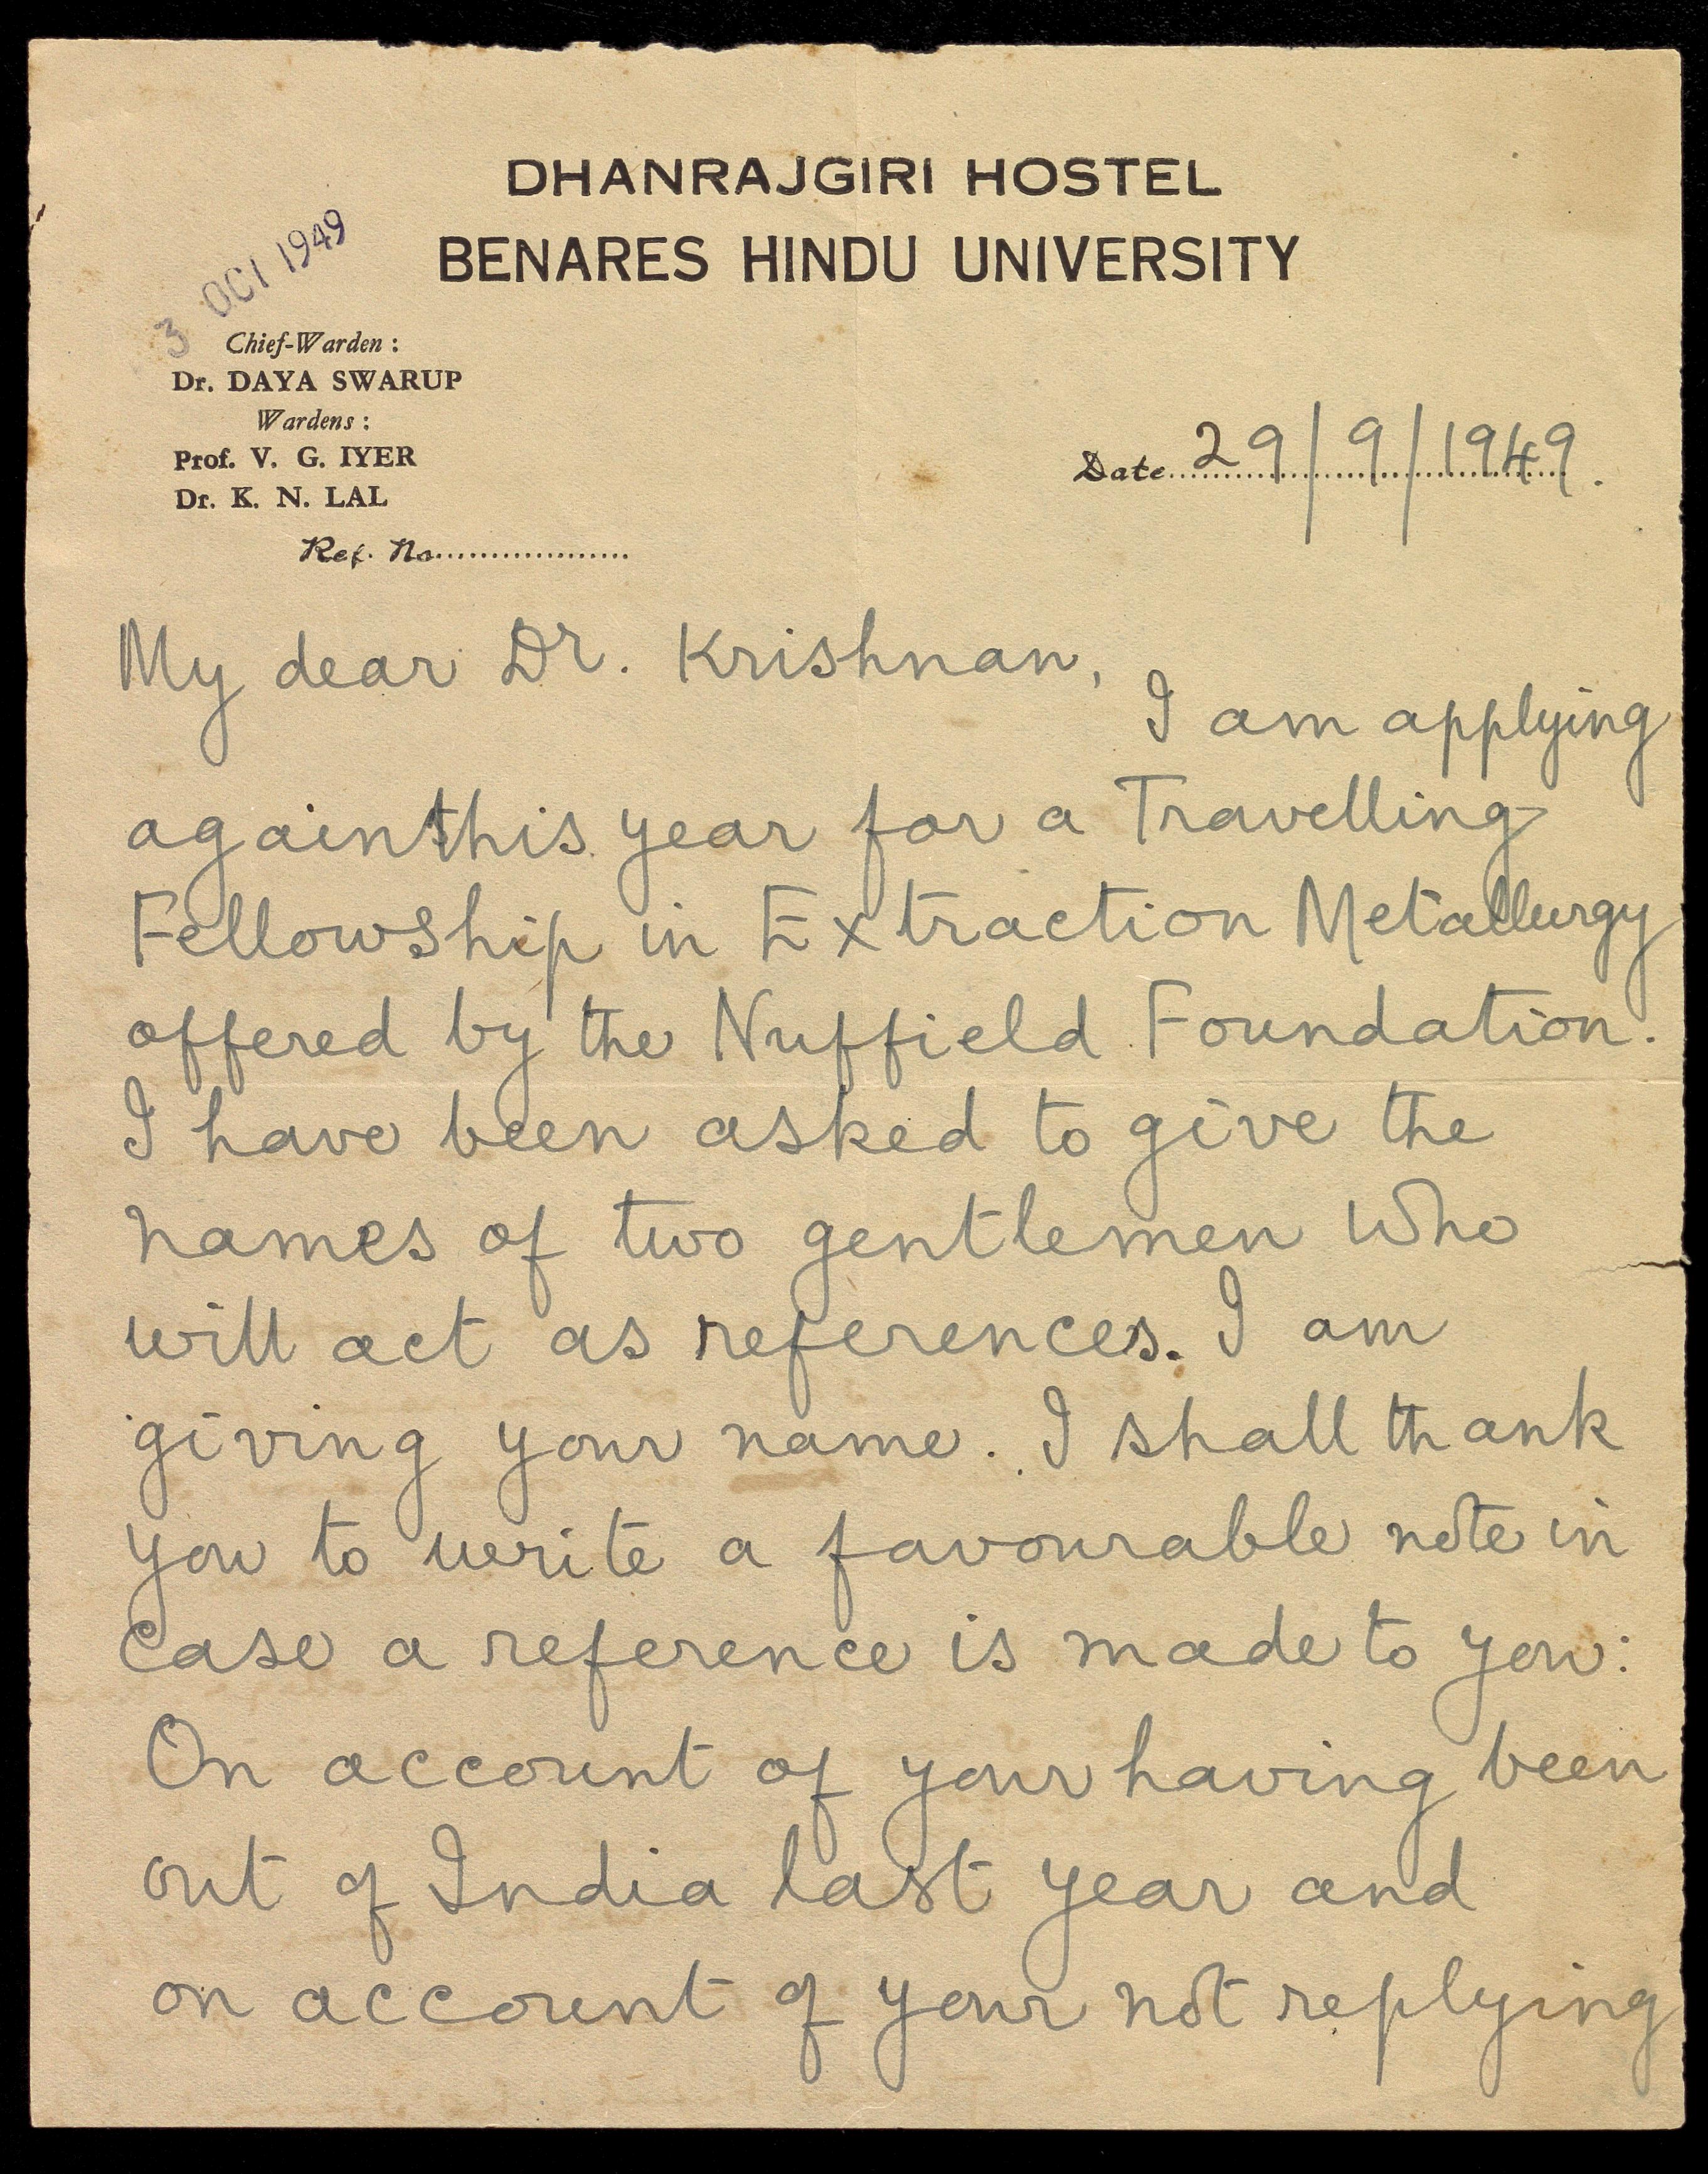 DHANRAJGIRI HOSTEL
BENARES HINDU UNIVERSITY
3 OCT 1949
Chief-Warden :
Dr. DAYA SWARUP
Wardens :
Prof. V. G. IYER
Dr. K. N. LAL
Ref. No....................
Date 29/9/1949.
My dear Dr. Krishnan,
I am applying
again this year for a Travelling
Fellowship in Extraction Metallurgy
offered by the Nuffield Foundation.
I have been asked to give the
names of two gentlemen who
will act as references. I am
giving your name. I shall thank
you to write a favourable note in
case a reference is made to you:
On account of your having been
out of India last year and
on account of your not replying